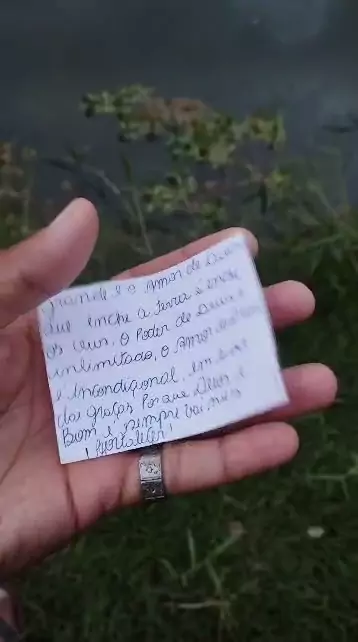 grande é o amor de Deus
que enche a terra e enche
os céus, O Poder de Deus é
inlimitado, O Amor de Deus
é Incondiçonal, em tudo
dai graças Porque Deus é
Bom e sempre vai nos
fortalecer!